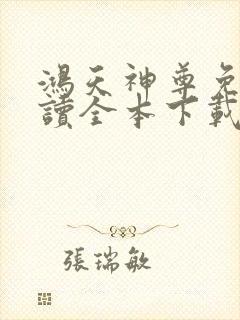 鴻天神尊免
讀全本下載
張瑞敏